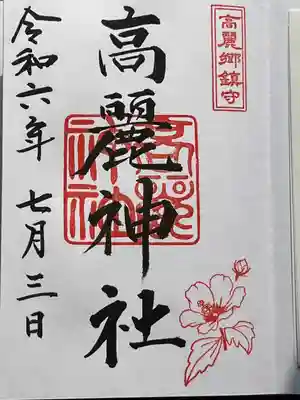 高麗郷鎮守
高麗神社
高麗神社
令和六年 七月三日